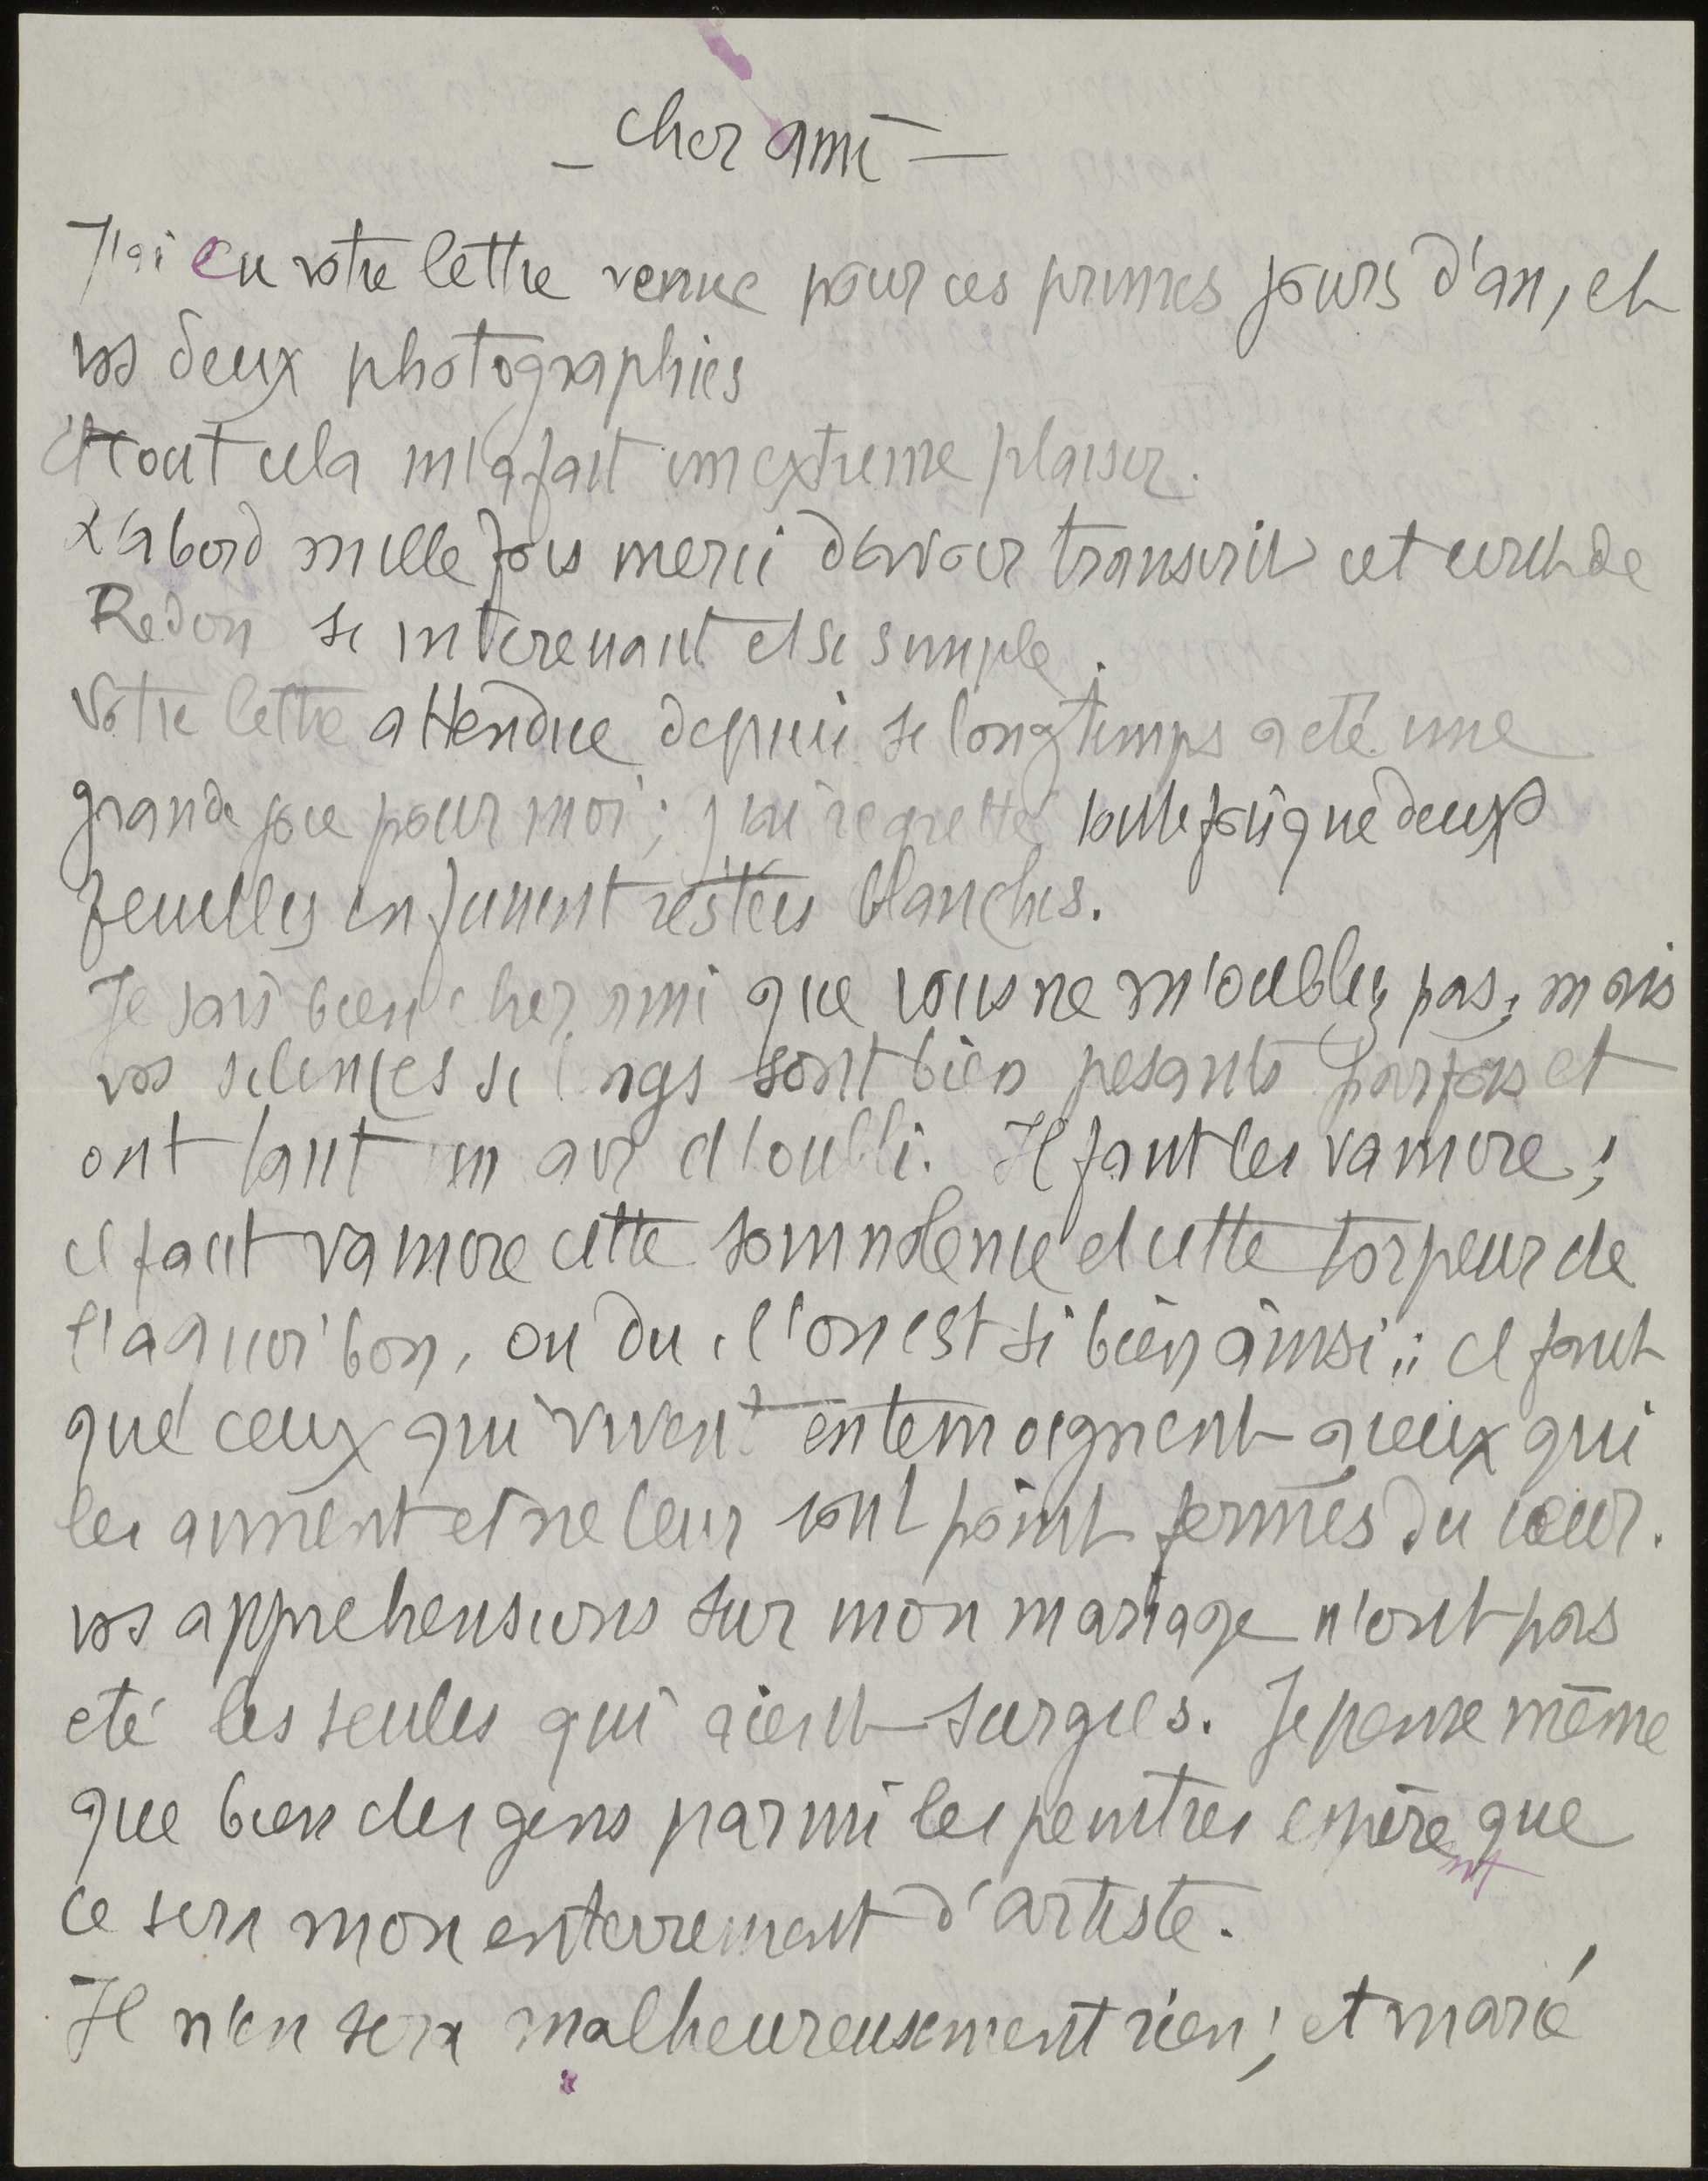 - cher ami -
J'ai eu votre lettre venue pour ces primes jours d'an, et
vos deux photographies
tout cela m'a fait un extreme plaisir.
d'abord mille fois merci d'avoir transcrit cet ecrit de
Redon si interessant et si simple.
Votre lettre attendue depuis si longtemps a eté une
grande joie pour moi; j'ai regretté toutefois que deux
feuilles en fussent restées blanches.
Je sais bien cher ami que vous ne m'oubliez pas; mais
vos silences si longs sont bien pesants parfois et
ont tant un air d'oubli. Il faut les vaincre;
il faut vaincre cette somnolence et cette torpeur de
l'a quoi bon, ou du "l'on est si bien ainsi"; il faut
que ceux qui vivent en temoignent a ceux qui
les aiment et ne leur sont point fermés du cœur.
vos apprehensions sur mon mariage n'ont pas
eté les seules qui aient surgies. Je pense même
que bien des gens parmi les peintres espèrent que
ce sera mon enterrement d'artiste.
Il n'en sera malheureusement rien; et marié